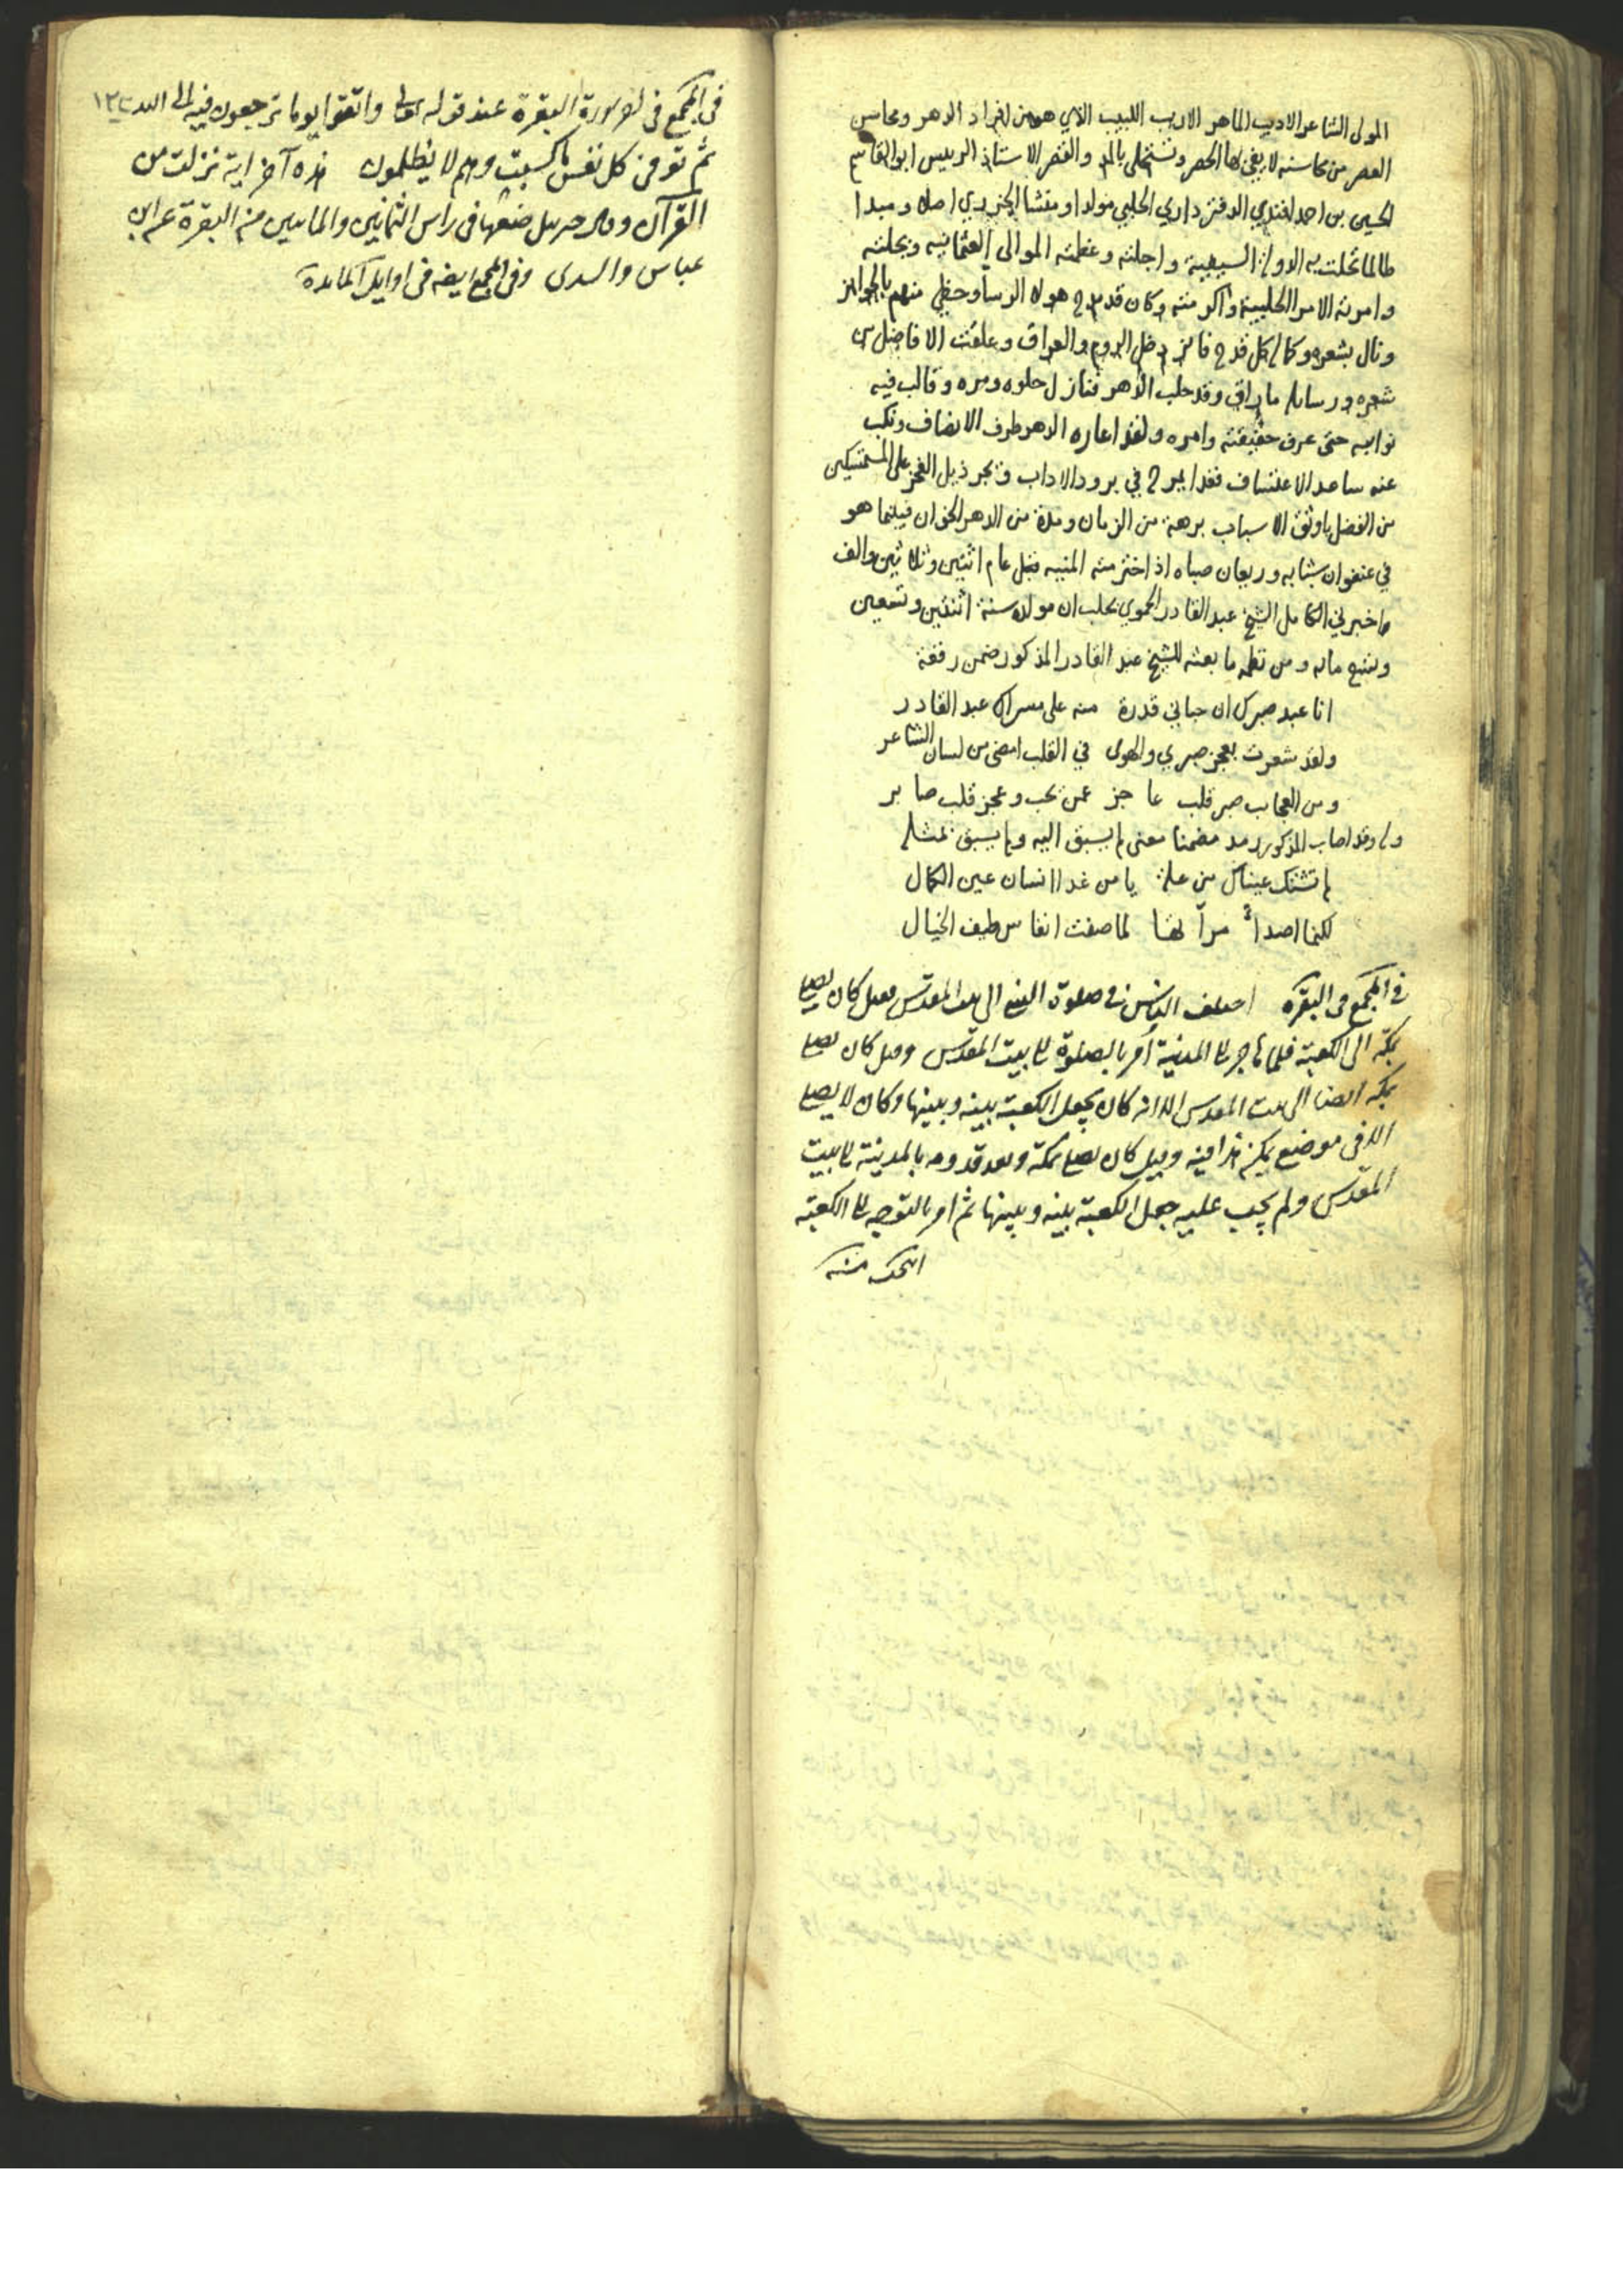 المولى الشاعر الاديب الماهر الاريب اللبيب الذي هو من افراد الدهر ومحاسن
العصر من محاسنه لا يفي لها الحصر وتتحلى بالمد والقصر الاستاذ الرييس ابو القاسم
الحيى بن احمد افندي الدفترداري الحلبي مولدا ومنشا الجزري اصلا ومبدا
طالما تحلت به الدولة السيفية واجلته وعظمته الموالي العثمانيه وبجلته
وامرته الامرا الحلبية واكرمته وكان قد مدح هولا الرسا وحظي منهم بالجوايز
ونال بشعره وكماله كل قدح فايز دخل الروم والعراق وعلقت الافاضل من
شعره ورسايله ما راق وقد حلب الدهر فنازل حلوه ومره وقالب فيه
نوايبه حتى عرف حقيقته وامره ولقد اعاره الدهر طرف الانصاف ونكب
عنه ساعد الاعتساف فغدا يمرح في برود الاداب ويجر ذيل الفخر على المتمسكين
من الفضل باوثق الاسباب برهة من الزمان ومدة من الدهر الخوان فبينما هو
في عنفوان شبابه وريعان صباه اذ اخترمته المنيه قبل عام اثنين وثلاثين والف
واخبرني الكامل الشيخ عبد القادر الحموي بحلب ان مولده سنة اثنتين وتسعين
وتسع مايه ومن نظمه ما بعثه للشيخ عبد القادر المذكور ضمن رقعة
انا عبد صبرك ان حباني قدرة منه على مسراك عبد القادر
ولقد شعرت بعجز صبري والهوى في القلب امضى من لسان الشاعر
ومن العجايب صبر قلب عاجز عمن يحب وعجز قلب صابر
وله وقد اصاب المذكور رمد مضمنا معنى لم يسبق اليه ولم يسبق بمثله
لم تشتك عيناك من علة يا من غدا انسان عين الكمال
لكنما اصدا مرآتها لما صفت انفاس طيف الخيال
في المجمع في البقره اختلف الناس في صلوة النبي الى بيت المقدس فقيل كان يصلي
بمكة الى الكعبة فلما هاجر الى المدنية أمر بالصلوة الى بيت المقدس وقيل كان يصلي
بمكه ايضا الى بيت المقدس الا انه كان يجعل الكعبة بينه وبينها وكان لا يصلي
الا في موضع يمكن هذا فيه وقيل كان يصلي بمكة وبعد قدومه بالمدينة الى بيت
المقدس ولم يجب عليه جعل الكعبة بينه وبينها ثم امر بالتوجه الى الكعبة
منه
في المجمع في سورة البقرة عند قوله تعالى واتقوا يوما ترجعون فيه الى الله
ثم توفى كل نفس ما كسبت وهم لا يظلمون هذه آخر اية نزلت من
القرآن وقال جبريل ضعها في راس الثمانين والمايتين من البقرة عن ابن
عباس والسدى وفى المجمع ايضه في اوايل المائدة